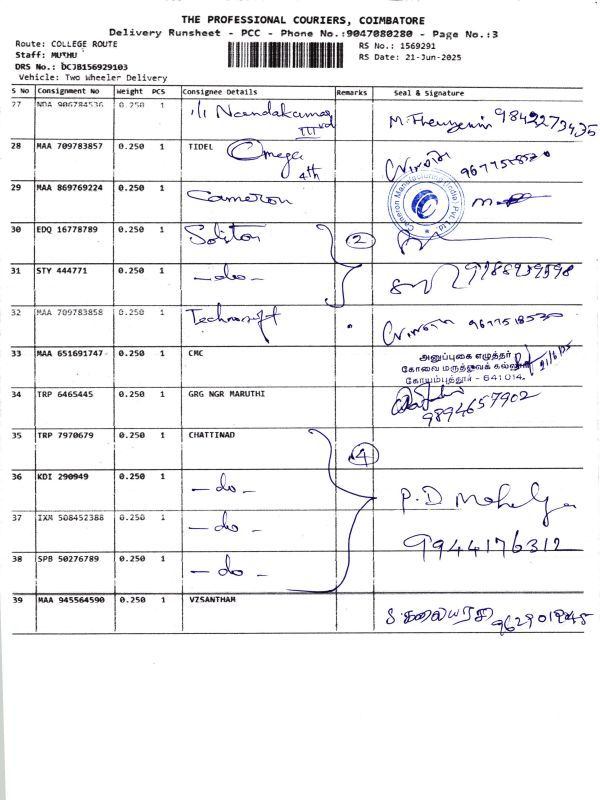 THE PROFESSIONAL COURIERS, COIMBATORE
Delivery Runsheet - PCC - Phone No.:9047080280 - Page No.:3
Route: COLLEGE ROUTE
RS No.: 1569291
Staff: MUTHU
RS Date: 21-Jun-2025
DRS No.: DCJB156929103
Vehicle: Two Wheeler Delivery
S No Consignment No Weight PCS Consignee Details Remarks Seal & Signature
27 NDA 906784536 0.250 1 Nandakumar
IIIrd
28 MAA 709783857 0.250 1 TIDEL Omega
4th
29 MAA 869769224 0.250 1 Cameron
Cameron Manufacturing (India) Pvt. Ltd.
30 EDQ 16778789 0.250 1 Soliton 2
31 STY 444771 0.250 1 - do -
32 MAA 709783858 0.250 1 Technosoft
33 MAA 651691747 0.250 1 CMC அனுப்புகை எழுத்தர்
கோவை மருத்துவக் கல்லூரி
கோயம்புத்தூர் - 641 014.
34 TRP 6465445 0.250 1 GRG NGR MARUTHI
9894657902
35 TRP 7970679 0.250 1 CHATTINAD 4
36 KDI 290949 0.250 1 - do -
P.D
37 IXM 508452388 0.250 1 - do -
9944176312
38 SPB 50276789 0.250 1 - do -
39 MAA 945564590 0.250 1 VZSANTHAM S. கலையரசி